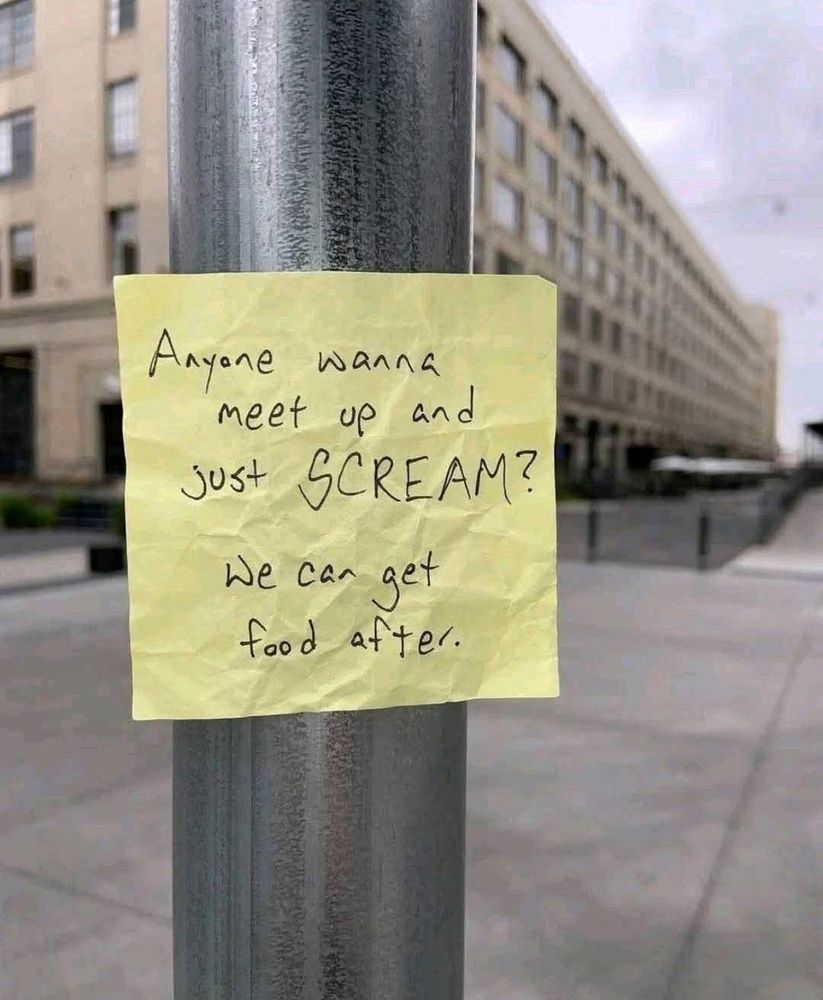 Anyone wanna
meet up and
just SCREAM?
We can get
food after.